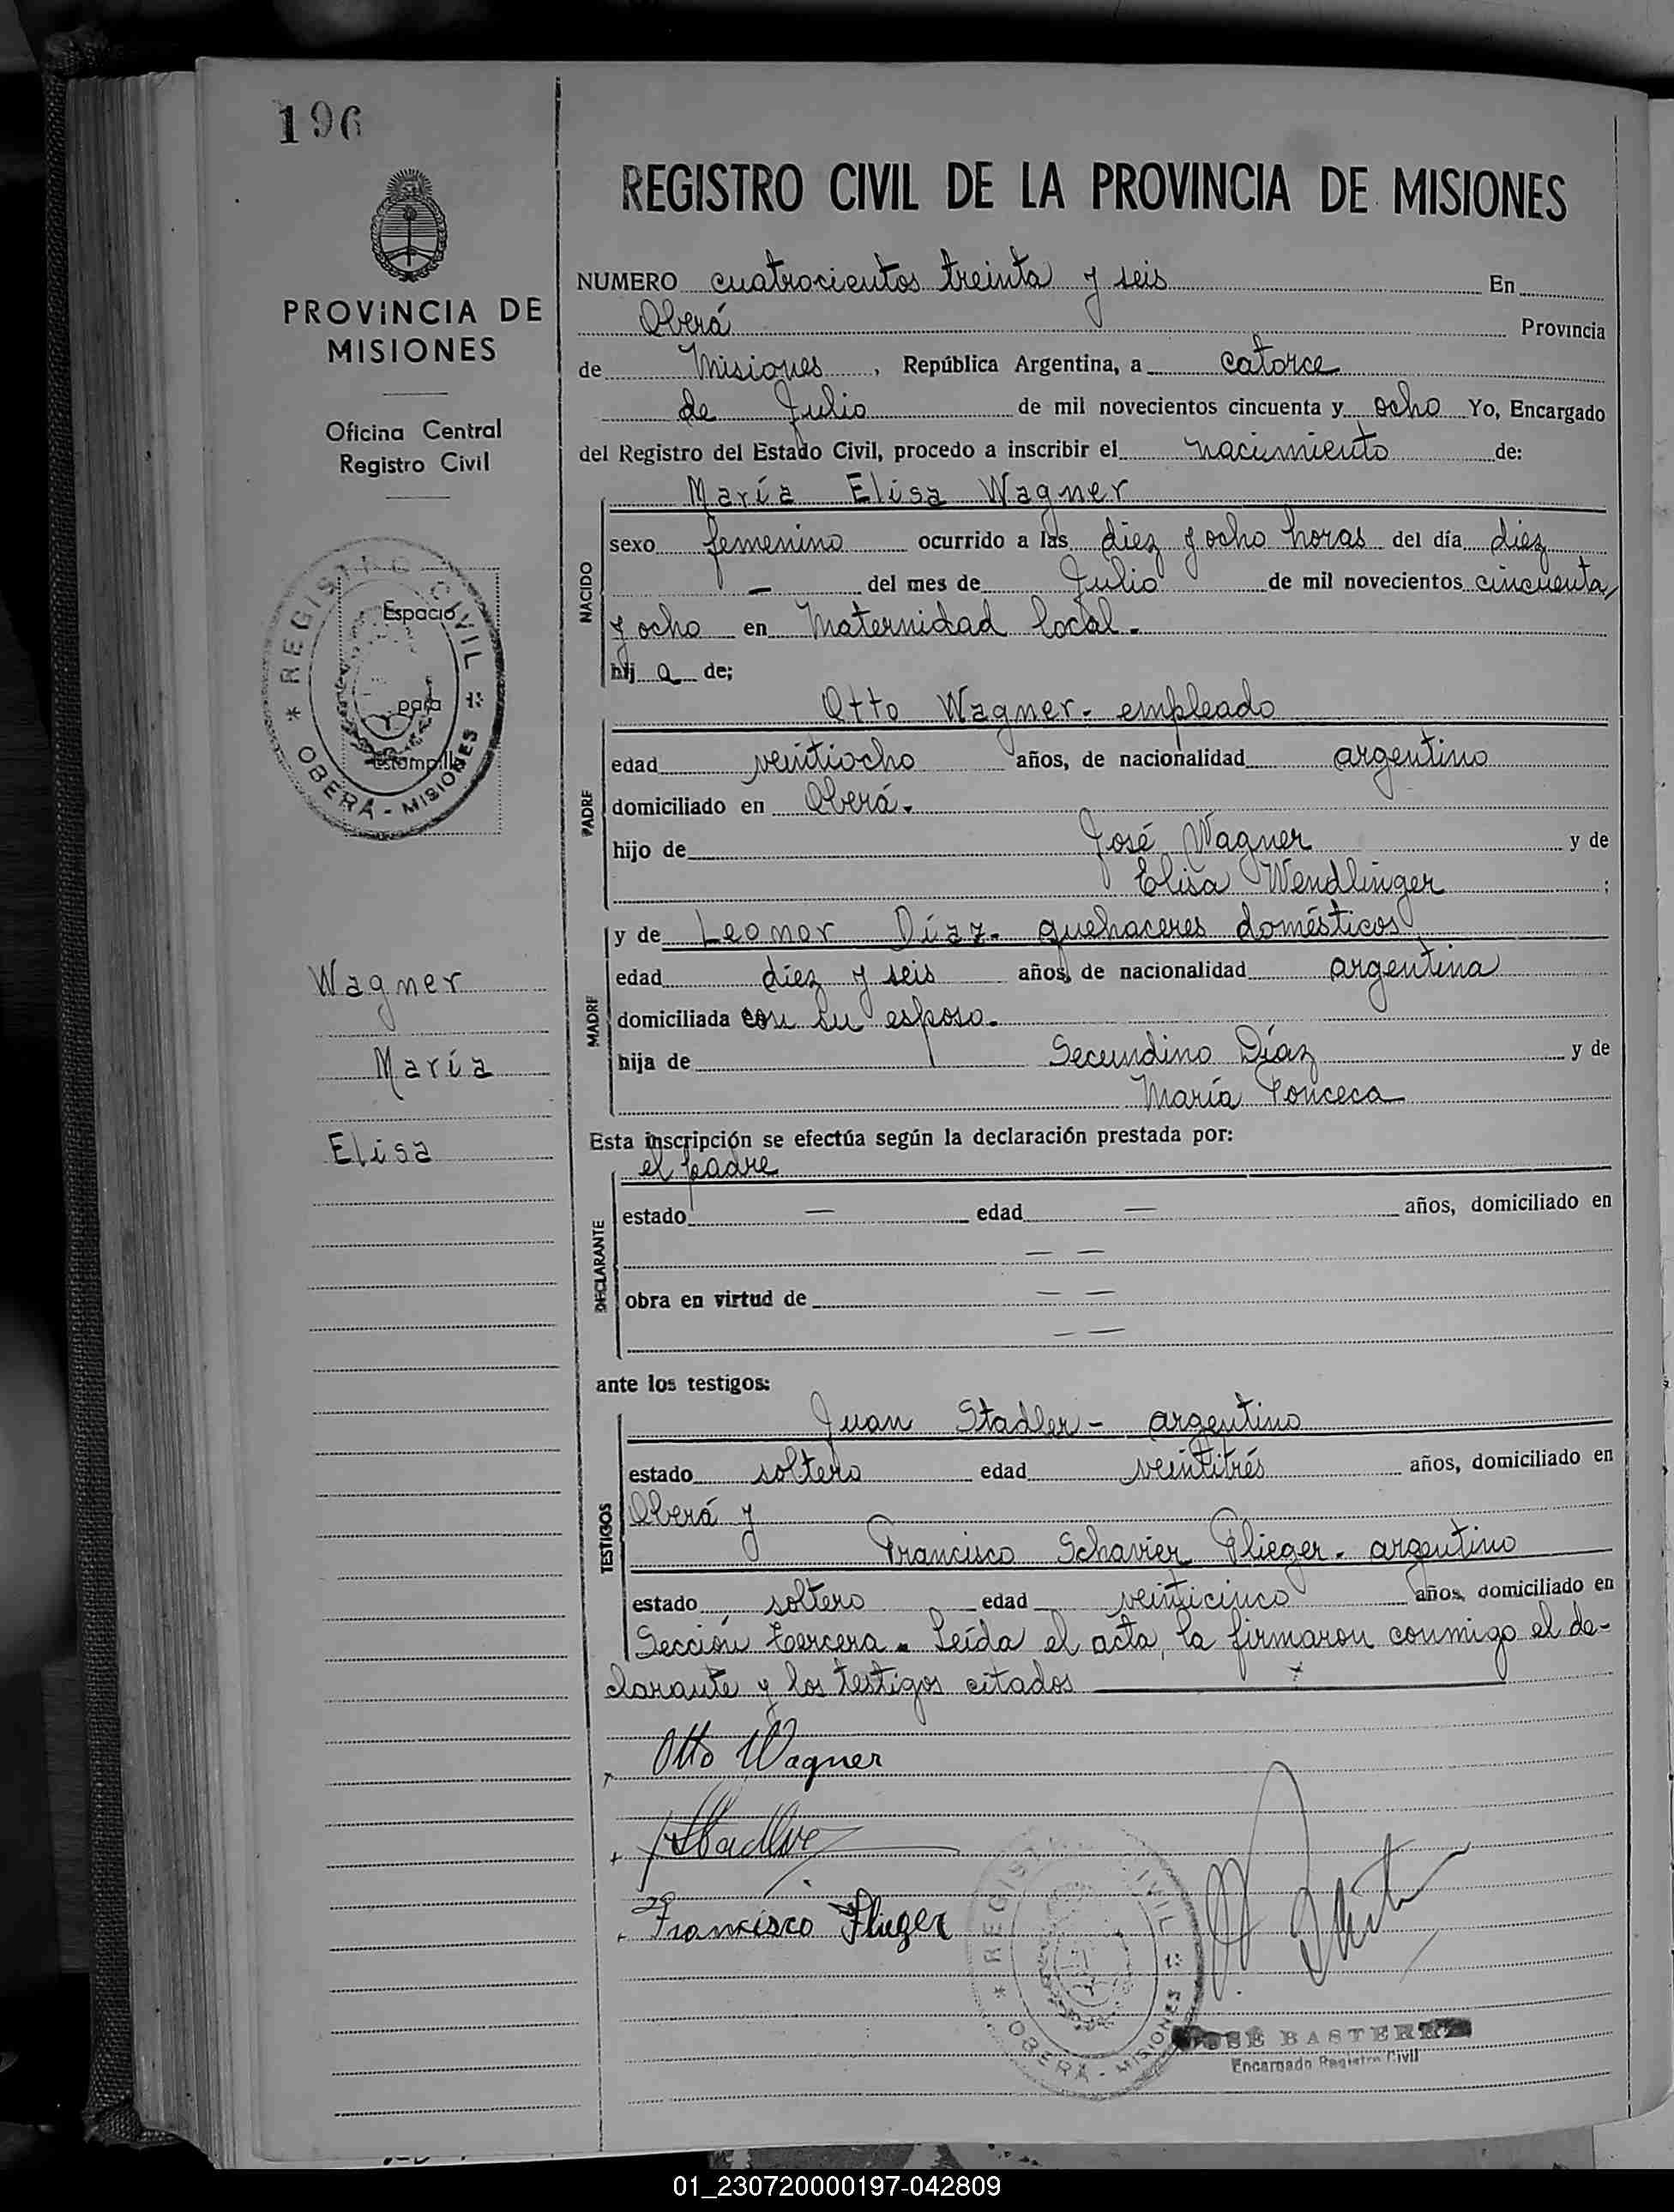 196
PROVINCIA DE
MISIONES
Oficina Central
Registro Civil
REGISTRO CIVIL
Espacio
para
Estampilla
* OBERÁ - MISIONES *
Wagner
María
Elisa
REGISTRO CIVIL DE LA PROVINCIA DE MISIONES
NUMERO cuatrocientos treinta y seis En
Oberá Provincia
de Misiones, República Argentina, a catorce
de Julio de mil novecientos cincuenta y ocho Yo, Encargado
del Registro del Estado Civil, procedo a inscribir el nacimiento de:
María Elisa Wagner
NACIDO
sexo femenino ocurrido a las diez y ocho horas del día diez
— del mes de Julio de mil novecientos cincuenta
y ocho en Maternidad local.
hij a de;
Otto Wagner - empleado
PADRE
edad veintiocho años, de nacionalidad argentino
domiciliado en Oberá.
hijo de José Wagner y de
Elisa Wendlinger ;
y de Leonor Díaz - quehaceres domésticos
MADRE
edad diez y seis años, de nacionalidad argentina
domiciliada con su esposo.
hija de Secundino Díaz y de
María Fonceca
Esta inscripción se efectúa según la declaración prestada por:
el padre
DECLARANTE
estado — edad — años, domiciliado en
— —
obra en virtud de — —
— —
ante los testigos:
Juan Stadler - argentino
TESTIGOS
estado soltero edad veintitrés años, domiciliado en
Oberá y
Francisco Schavier Flieger - argentino
estado soltero edad veinticinco años, domiciliado en
Sección tercera. Leída el acta, la firmaron conmigo el de-
clarante y los testigos citados
Otto Wagner
Francisco Flieger
REGISTRO CIVIL
* OBERÁ - MISIONES *
JOSÉ BASTERRA
Encargado Registro Civil
01_230720000197-042809